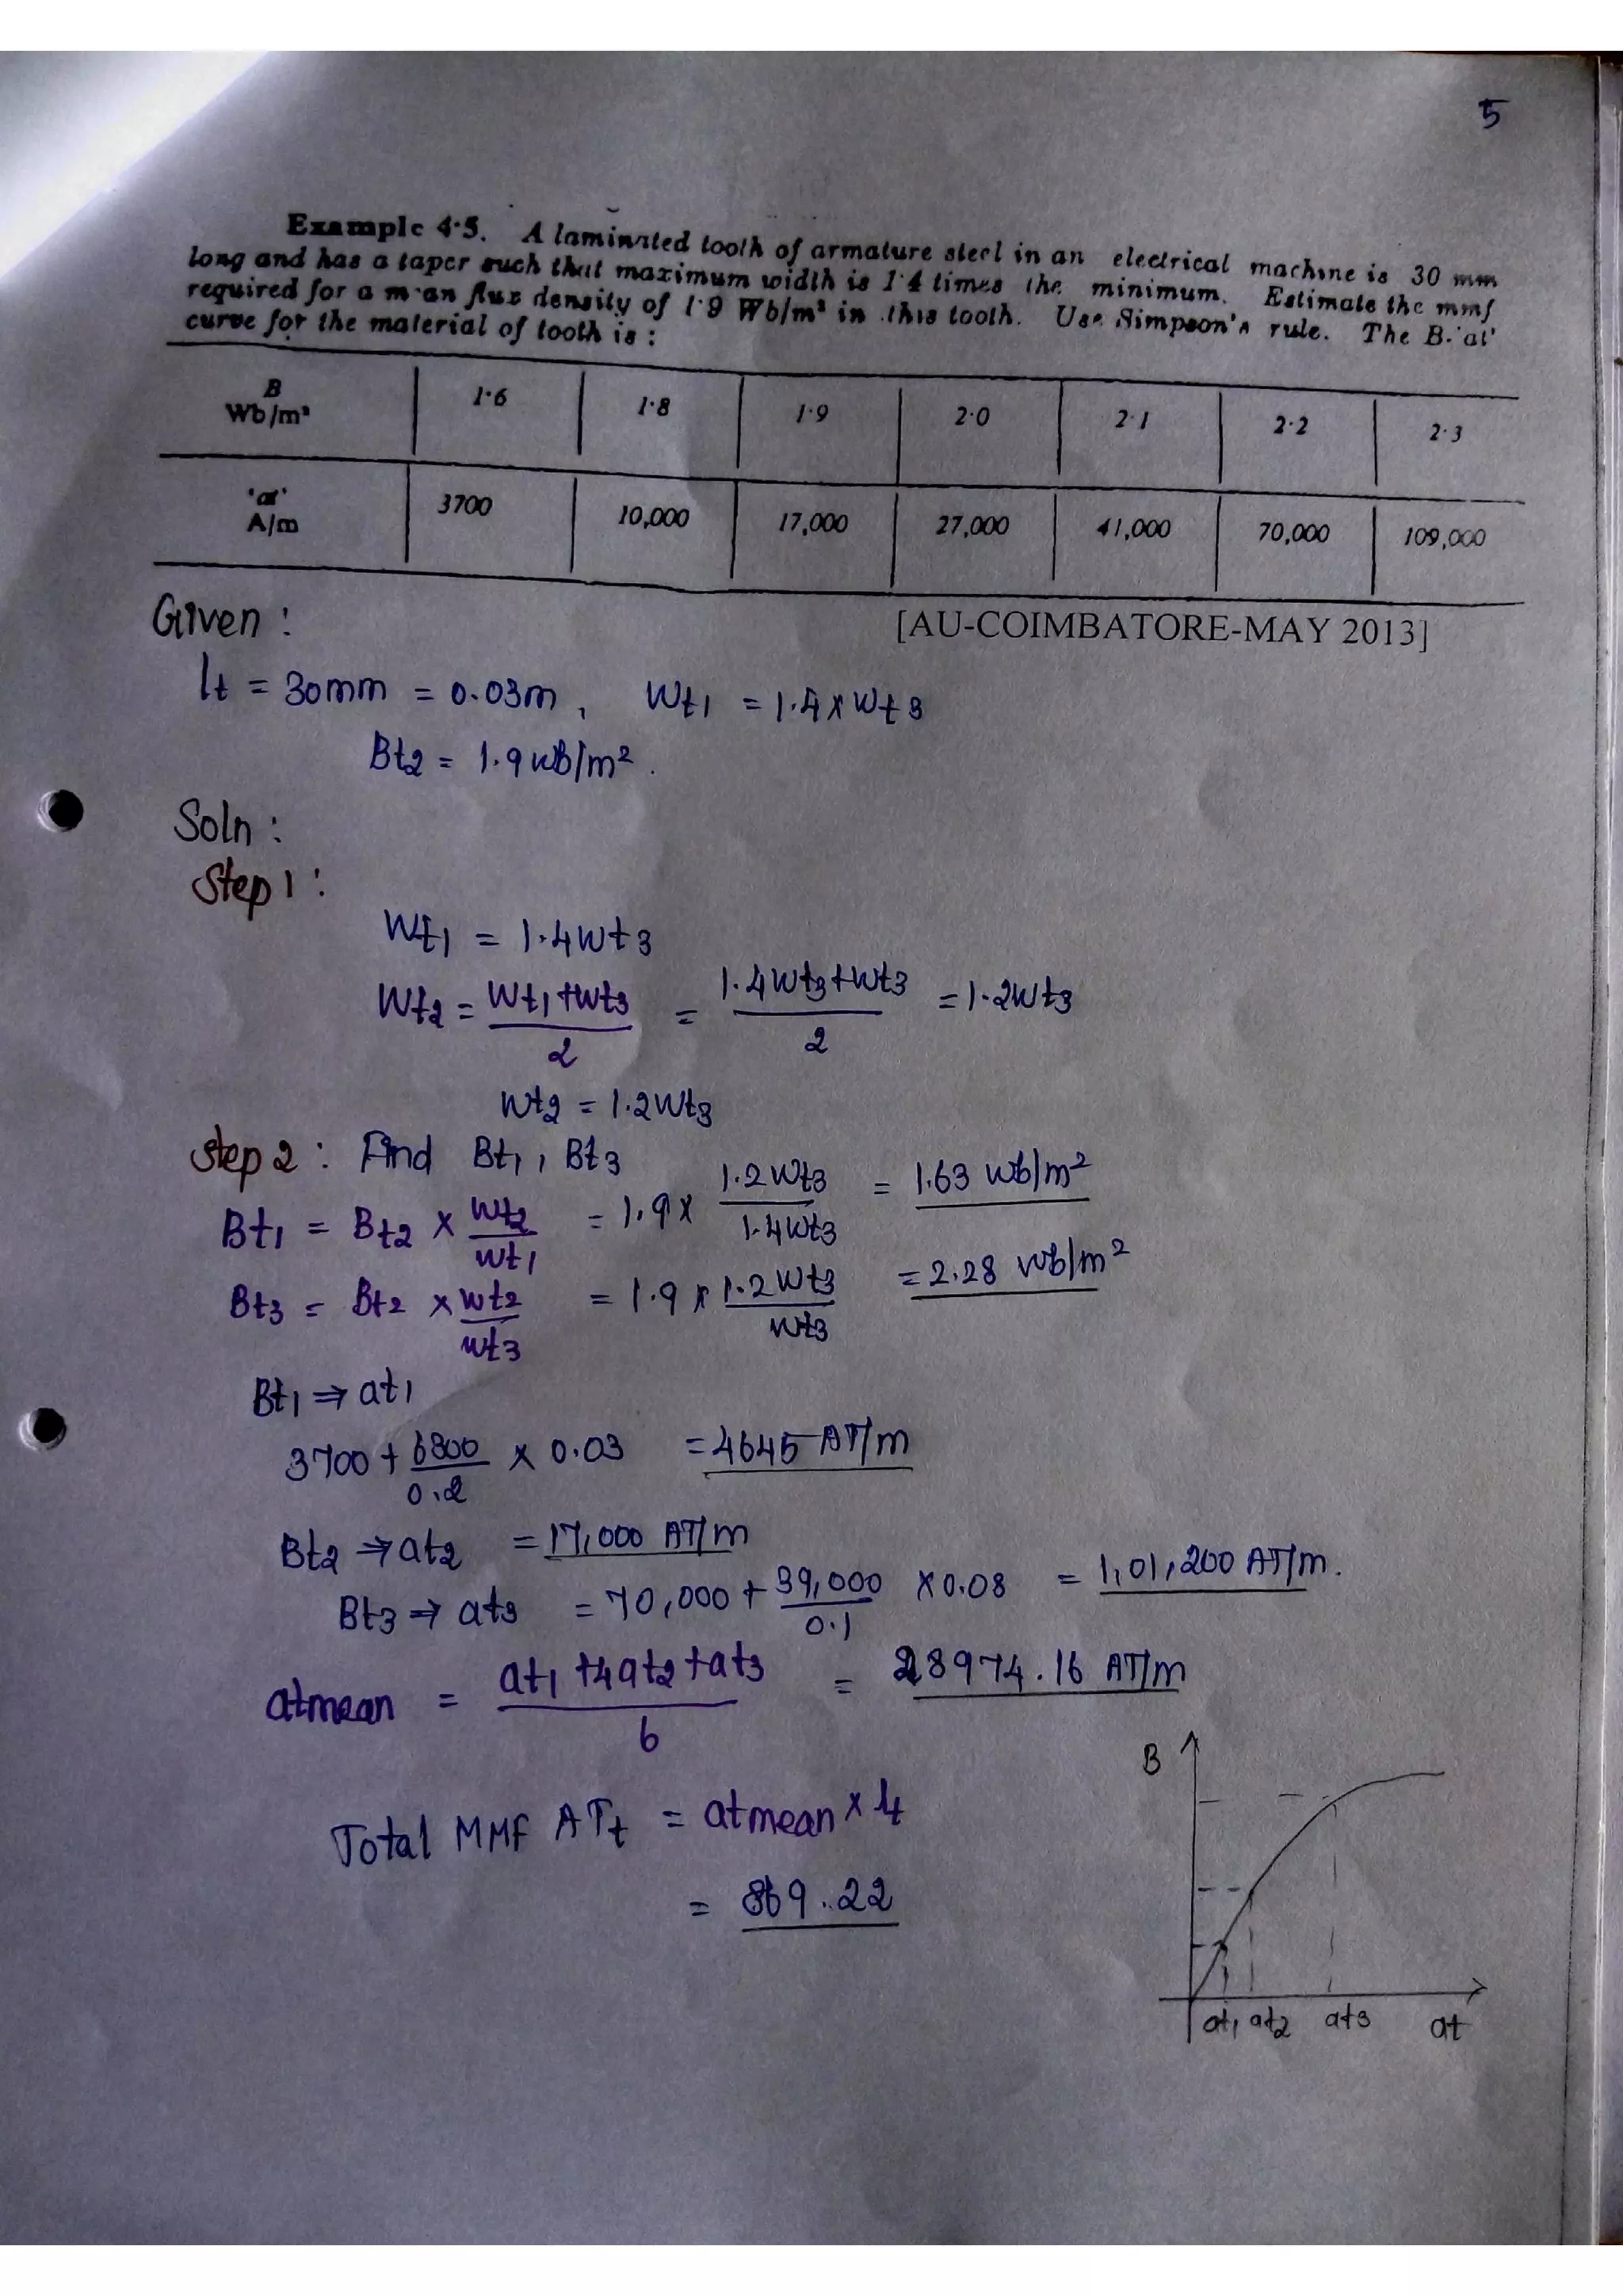 5
Example 4·5. A laminated tooth of armature steel in an electrical machine is 30 mm
long and has a taper such that maximum width is 1·4 times the minimum. Estimate the mmf
required for a m·an flux density of 1·9 Wb/m² in this tooth. Use Simpson's rule. The B-'at'
curve for the material of tooth is :
B Wb/m² 1·6 1·8 1·9 2·0 2·1 2·2 2·3
'at' A/m 3700 10,000 17,000 27,000 41,000 70,000 109,000
Given :
[AU-COIMBATORE-MAY 2013]
lt = 30mm = 0.03m, Wt1 = 1.4 x Wt3
Bt2 = 1.9 wb/m².
Soln :
Step 1 :
Wt1 = 1.4Wt3
Wt2 = Wt1+Wt3 / 2 = 1.4Wt3+Wt3 / 2 = 1.2Wt3
Wt2 = 1.2Wt3
Step 2 : Find Bt1, Bt3
Bt1 = Bt2 x Wt2 / Wt1 = 1.9 x 1.2Wt3 / 1.4Wt3 = 1.63 wb/m²
Bt3 = Bt2 x Wt2 / Wt3 = 1.9 x 1.2Wt3 / Wt3 = 2.28 wb/m²
Bt1 ⇒ at1
3700 + 6800 / 0.2 x 0.03 = 4645 AT/m
Bt2 ⇒ at2 = 17,000 AT/m
Bt3 ⇒ at3 = 70,000 + 39,000 / 0.1 x 0.08 = 1,01,200 AT/m.
atmean = at1 + 4at2 + at3 / 6 = 28974.16 AT/m
Total MMF ATt = atmean x lt
= 869.22
B
at1 at2 at3 at